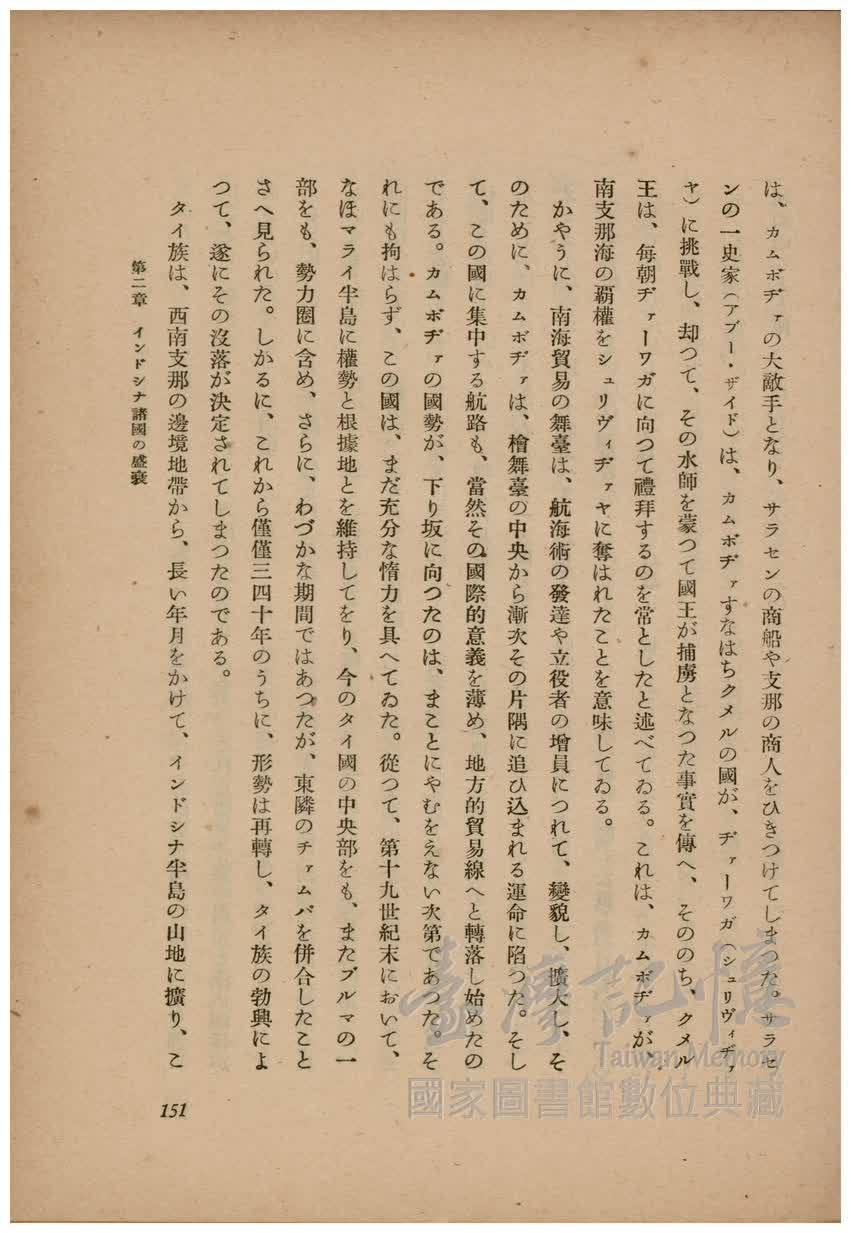 は、カムボヂァの大敵手となり、サラセンの商船や支那の商人をひきつけてしまつた。サラセ
ンの一史家（アブー・ザイド）は、カムボヂァすなはちクメルの國が、ヂァーワガ（シュリヴィヂァ
ヤ）に挑戰し、却つて、その水師を蒙つて國王が捕虜となつた事實を傳へ、そののち、クメル
王は、每朝ヂァーワガに向つて禮拜するのを常としたと述べてゐる。これは、カムボヂァが、
南支那海の覇權をシュリヴィヂァヤに奪はれたことを意味してゐる。
かやうに、南海貿易の舞臺は、航海術の發達や立役者の增員につれて、變貌し、擴大し、そ
のために、カムボヂァは、檜舞臺の中央から漸次その片隅に追ひ込まれる運命に陷つた。そし
て、この國に集中する航路も、當然その國際的意義を薄め、地方的貿易線へと轉落し始めたの
である。カムボヂァの國勢が、下り坂に向つたのは、まことにやむをえない次第であつた。そ
れにも拘はらず、この國は、まだ充分な惰力を具へてゐた。從つて、第十九世紀末において、
なほマライ半島に權勢と根據地とを維持してをり、今のタイ國の中央部をも、またブルマの一
部をも、勢力圈に含め、さらに、わづかな期間ではあつたが、東隣のチァムパを併合したこと
さへ見られた。しかるに、これから僅僅三四十年のうちに、形勢は再轉し、タイ族の勃興によ
つて、遂にその沒落が決定されてしまつたのである。
タイ族は、西南支那の邊境地帶から、長い年月をかけて、インドシナ半島の山地に擴り、こ
第二章　インドシナ諸國の盛衰
151
臺灣記憶
Taiwan Memory
國家圖書館數位典藏